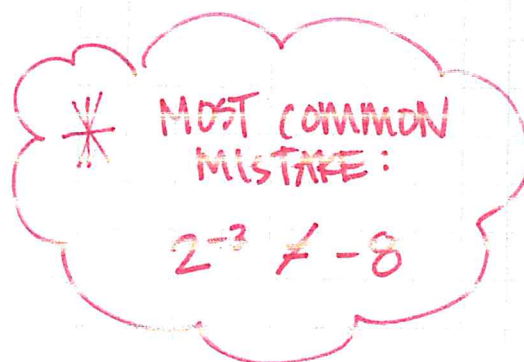 * MOST COMMON
MISTAKE:
2⁻³ ≠ -8